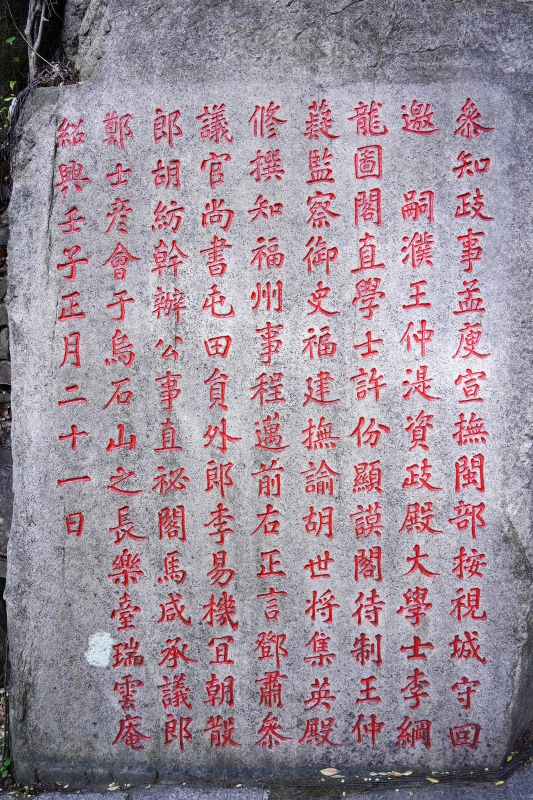 叅知政事孟庾宣撫閩部按視城守回
邀 嗣濮王仲湜資政殿大學士李綱
龍圖閣直學士許份顯謨閣待制王仲
薿監察御史福建撫諭胡世將集英殿
修撰知福州事程邁前右正言鄧肅叅
議官尚書屯田負外郎李易機冝朝散
郎胡紡幹辦公事直祕閣馬咸承議郎
鄭士彦會于烏石山之長樂臺瑞雲庵
紹興壬子正月二十一日